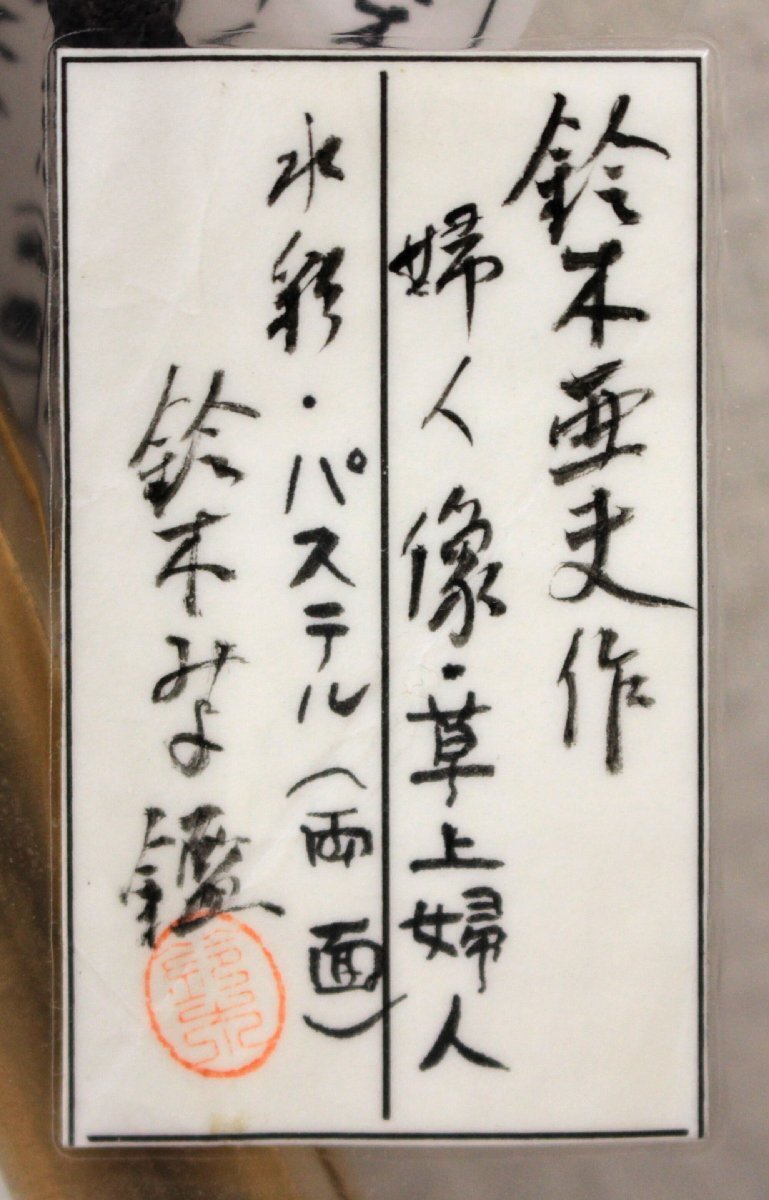 鈴木亜夫作
婦人像・草上婦人
水彩・パステル(両面)
鈴木みよ鑑
鈴木